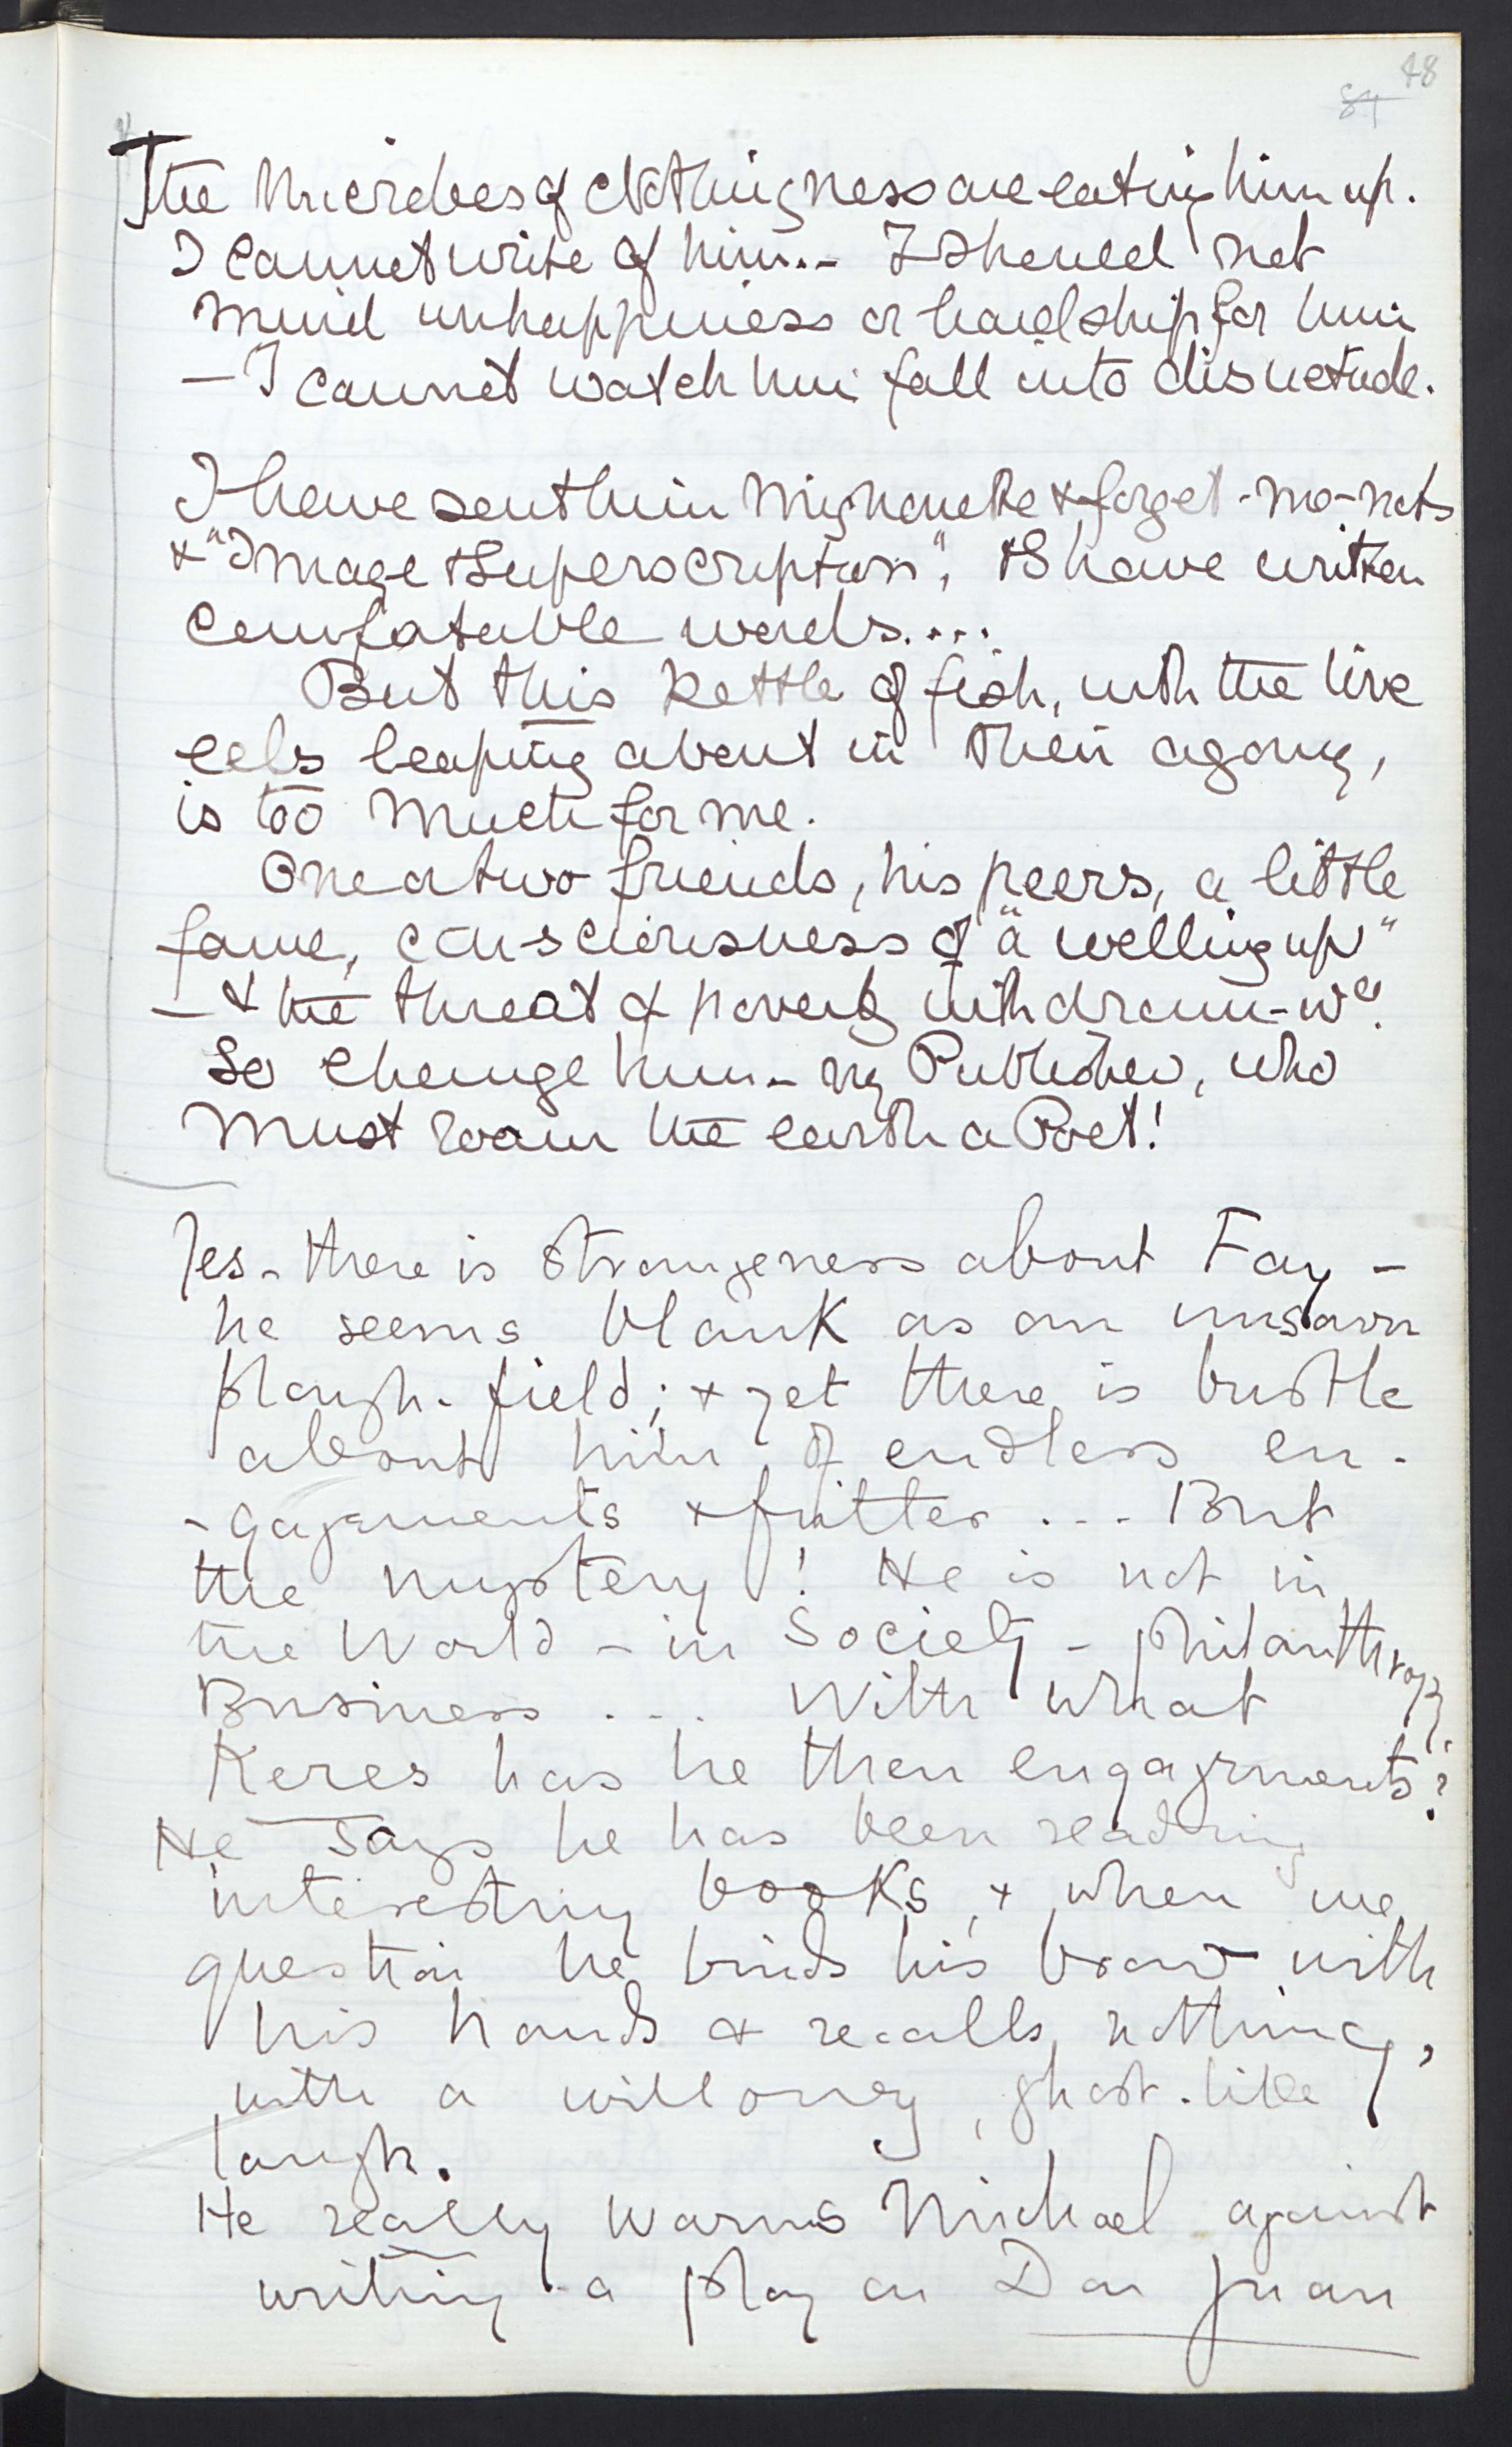 48
84
The Microbes of Nothingness are eating him up.
I cannot write of him.- I should not
mind unhappiness or hardship for him
- I cannot watch him fall into disuetude.
I have sent him Mignonette & forget-me-nots
& "Image & Superscription", & I have written
comfortable words....
But this kettle of fish, with the live
eels leaping about in their agony,
is too much for me.
One or two friends, his peers, a little
fame, consciousness of "a welling up"
- & the threat of poverty withdrawn - wd.
so change him - my Publisher, who
must roam the earth a Poet!
Yes - there is strangeness about Fay -
he seems blank as an unsown
plough-field; & yet there is bustle
about him of endless en-
-gagements & fritter ... But
the mystery! He is not in
the World - in Society - philanthropy
Business ... With what
Keres has he then engagements?
He says he has been reading
interesting books, & when we
question he binds his brow with
his hands & recalls nothing,
with a willowy, ghost-like
laugh.
He really warns Michael against
writing a play on Don Juan